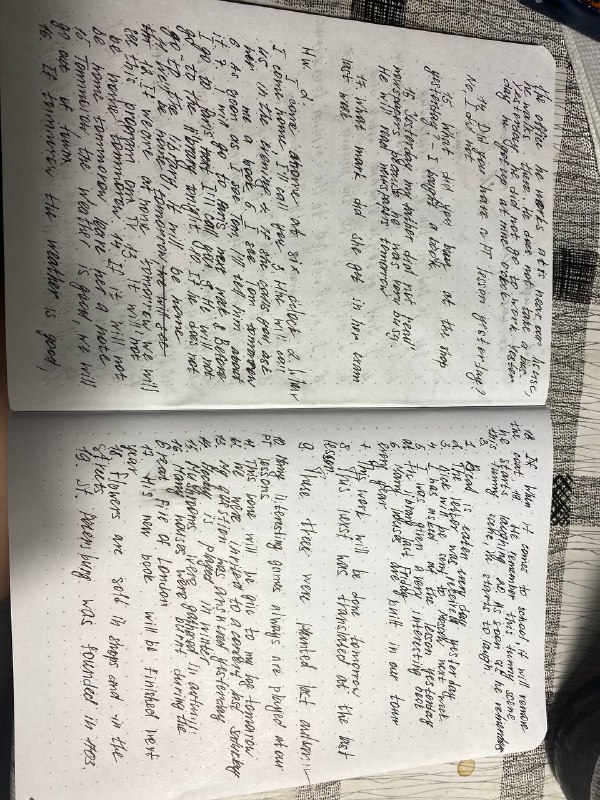 the office he works at is near our house,
he walks there. He does not take a bus.
Yesterday he did not go to work. Yester
day he got up at nine o'clock.
14. Did you have a PT lesson yesterday?
No, I did not
15 What did you buy at the shop
yesterday - I bought a book.
16 Yesterday my father did not read
newspapers because he was very busy.
He will read newspapers tomorrow
17. What mark did she get in her exam
last week
Hw 2.
I come home at six o'clock 2. When
I come home I'll call you 3. He will call
us in the evening 4 If she calls you, ask
her a book 5 I see Tom tomorrow
6 As soon as I see Tom I'll tell him about
it 7. I will go to Paris next week 8 Before
I go to Paris I'll call you 9 He will not
go to the library tonight 10 If he does not
go to the library, it will be home
11 We'll be home tomorrow
12 If we are at home tomorrow we will
see this program on TV 13 it will not
be home tomorrow 14 If it will not
be home tomorrow leave her a note
15 Tomorrow the weather is good, we will
go out of town
16 If tomorrow the weather is good,
18 If when it comes to school it will remove
the coat 19 he remember this funny scene
he starts laughing 20 As soon as he remember
this funny scene, he starts to laugh
3.
1 Bread is eaten every day
2 The letter was received yesterday
3 Nick will be sent to Moscow next week
4 I was asked at the lesson yesterday
5 I was given a very interesting book
at the library last Friday
6. Many houses are built in our town
every year
7 This work will be done tomorrow
8 This text was translated at the last
lesson
9 These trees were planted last autumn
10 many interesting games always are played at our
PT lessons
11 This bone will be give to my dog tomorrow
12 We were invited to a concert last Saturday
13 My question was answered yesterday
14 Hockey is played in winter
15 Mushrooms were gathered in autumn
16 Many houses were burnt during the
Great Fire of London
17 His new book will be finished next
year
18 Flowers are sold in shops and in the
streets
19. St. Petersburg was founded in 1703.